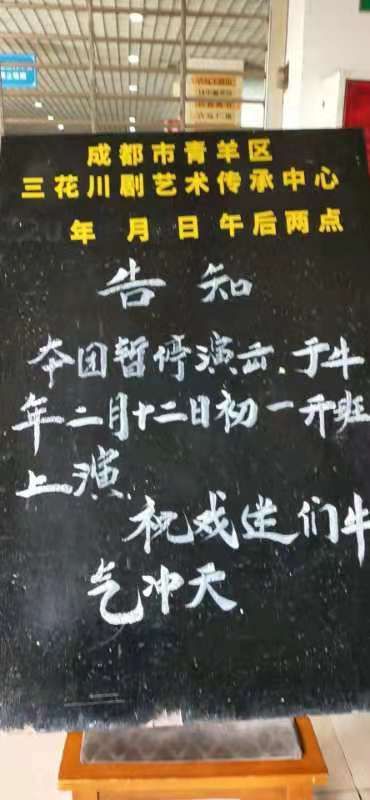 成都市青羊区
三花川剧艺术传承中心
年 月 日 午后两点
告知
本团暂停演出.于牛
年二月十二日初一开班
上演.
祝戏迷们牛
气冲天